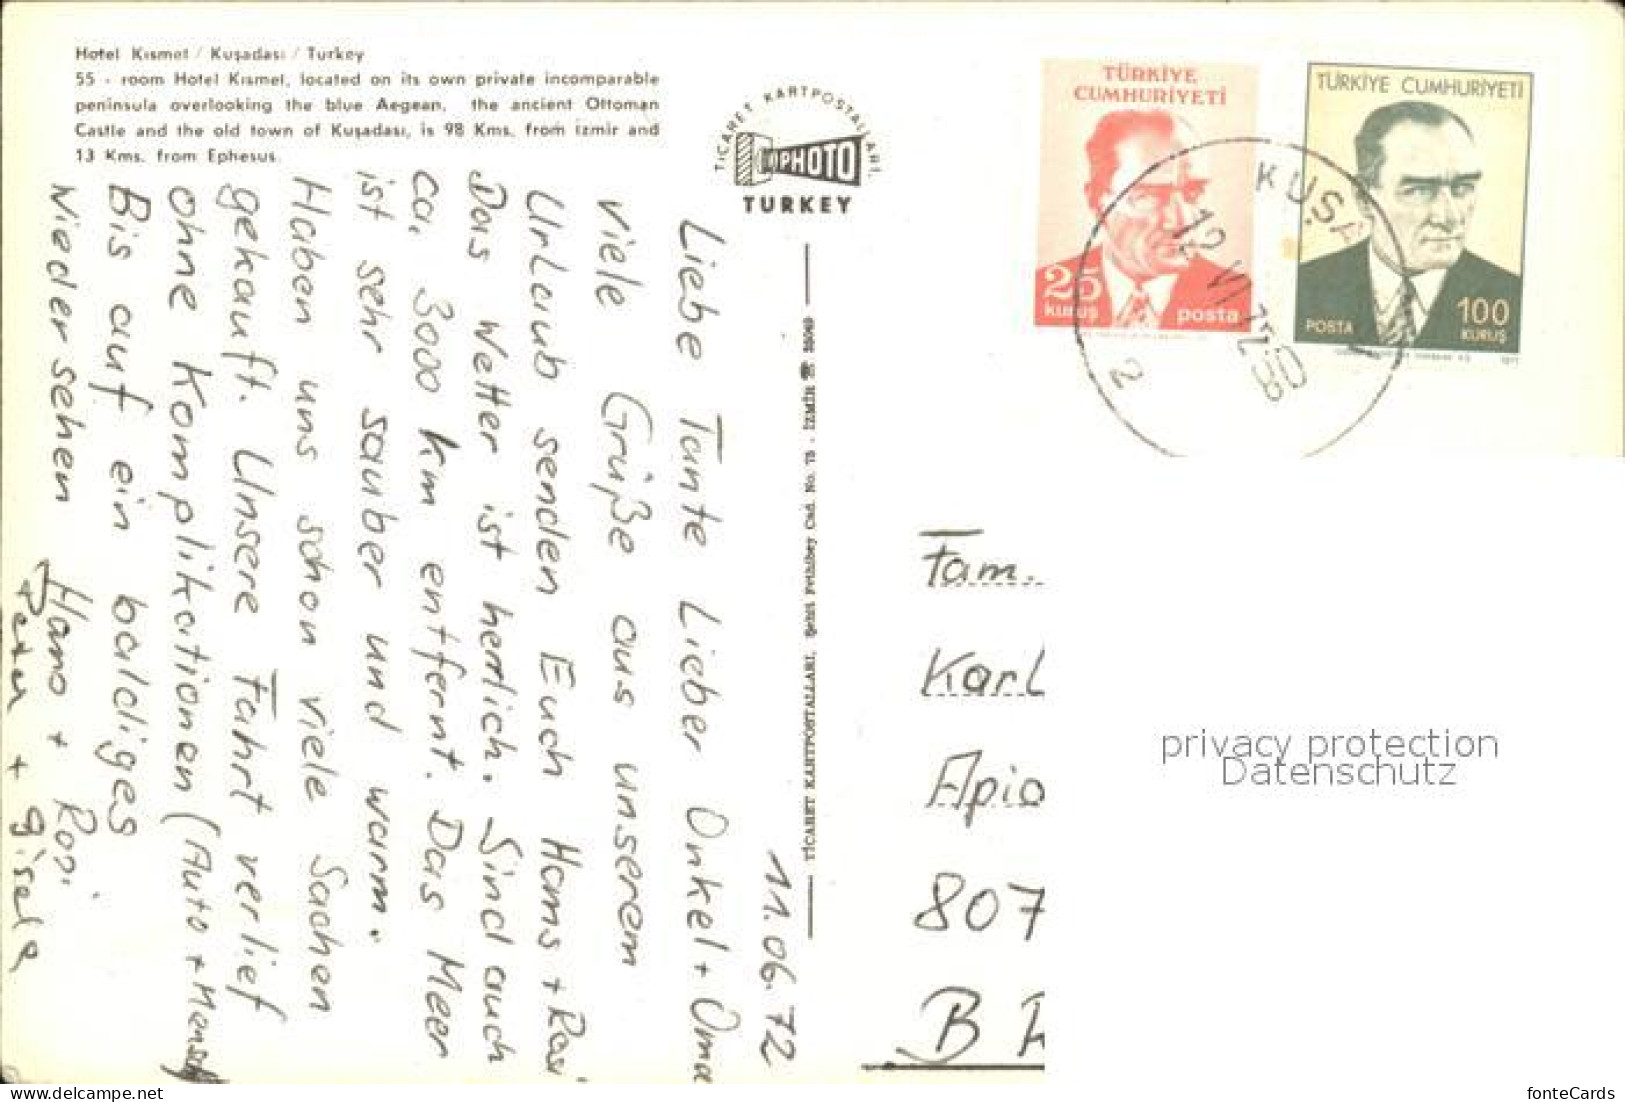 Hotel Kısmet / Kuşadası / Turkey
55 - room Hotel Kısmet, located on its own private incomparable
peninsula overlooking the blue Aegean, the ancient Ottoman
Castle and the old town of Kuşadası, is 98 Kms. from İzmir and
13 Kms. from Ephesus.
TİCARET KARTPOSTALLARI.
PHOTO
TURKEY
TÜRKİYE
CUMHURİYETİ
25
KURUŞ
posta
TÜRKİYE CUMHURİYETİ
POSTA
100
KURUŞ
1971
KUŞA
12 VI
2
11.06.72
Liebe Tante Lieber Onkel + Oma
viele Grüße aus unserem
Urlaub senden Euch Hams + Rosi
Das Wetter ist herrlich. Sind auch
ca. 3000 Km entfernt. Das Meer
ist sehr sauber und warm.
Haben uns schon viele Sachen
gekauft. Unsere Fahrt verlief
ohne Komplikationen (Auto + Mensch
Bis auf ein baldiges
Wiedersehen
+ Rosi
Peter + Gisela
TİCARET KARTPOSTALLARI, Şehit Fethibey Cad. No. 75 - İZMİR ☎ 35040
Fam.
Karl
Apio
807
B R
privacy protection
Datenschutz
delcampe.net
fonteCards